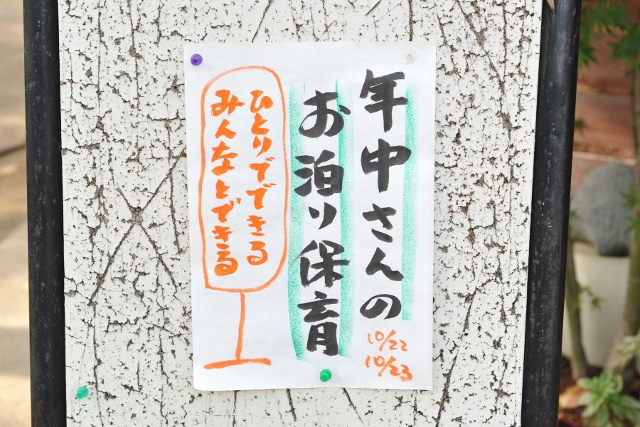 年中さんの
お泊り保育
10/22
10/23
ひとりでできる
みんなとできる